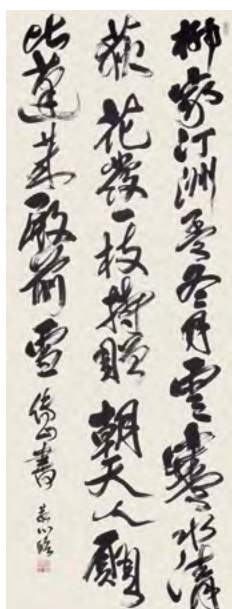 柳家汀洲孟冬月雲寒水清
荻花發一枝持贈朝天人願
比蓬萊殿前雪 傅山書